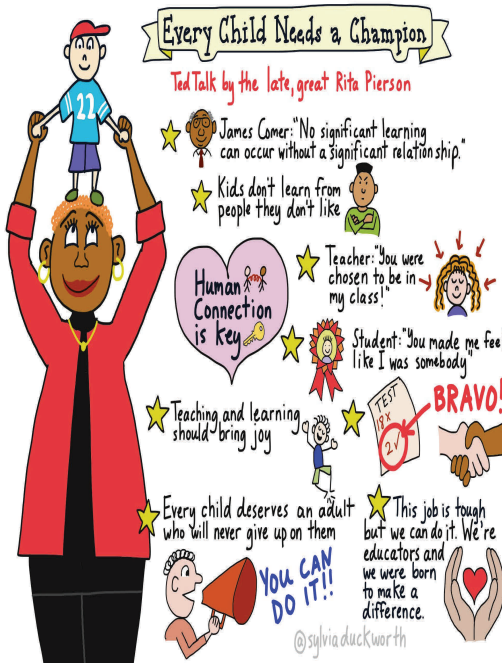 Every Child Needs a Champion
Ted Talk by the late, great Rita Pierson
22
James Comer: "No significant learning
can occur without a significant relationship."
Kids don't learn from
people they don't like
Human
Connection
is key
Teacher: "You were
chosen to be in
my class!"
Student: "You made me fee
like I was somebody"
Teaching and learning
should bring joy
TEST
18 X
2 ✓
BRAVO!
Every child deserves an adult
who will never give up on them
YOU CAN
DO IT!!
This job is tough
but we can do it. We're
educators and
we were born
to make a
difference.
@sylviaduckworth